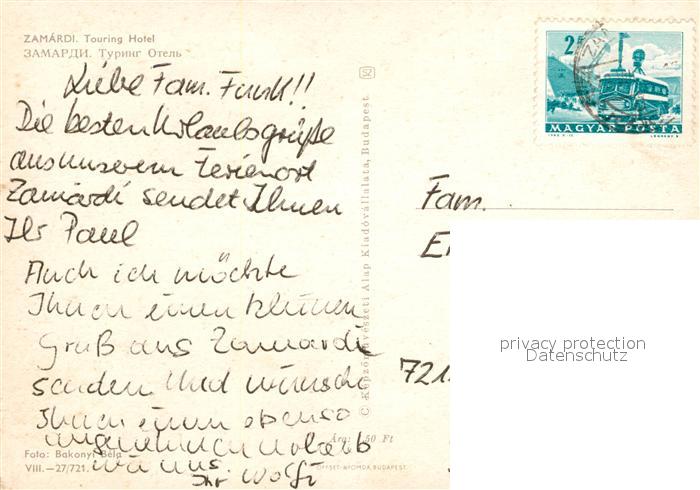 ZAMÁRDI. Touring Hotel
ЗАМАРДИ. Туринг Отель
Liebe Fam. Funk!!
Die besten Urlaubsgrüße
aus unserem Ferienort
Zamárdi sendet Ihnen
Ihr Paul
Auch ich möchte
Ihnen einen kleinen
Gruß aus Zamardi
senden. Und wünsche
Ihnen einen ebenso
angenehmen Urlaub
wie uns.
Ihr Wolfi
Foto: Bakonyi Béla
VIII.—27/721.
Ára: 1,50 Ft
OFFSET-NYOMDA, BUDAPEST
© Képzőművészeti Alap Kiadóvállalata, Budapest
SZ
2 Ft
MAGYAR POSTA
Fam.
721
privacy protection
Datenschutz